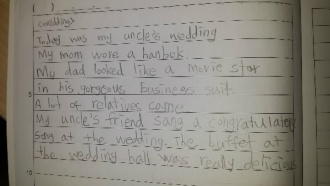 ( )
<wedding>
Today was my uncle's wedding
My mom wore a hanbok
My dad looked like a movie star
in his gorgeous business suit.
5
A lot of relatives came
My uncle's friend sang a congratulatory
song at the wedding. The buffet at
the wedding hall was really delicious
10